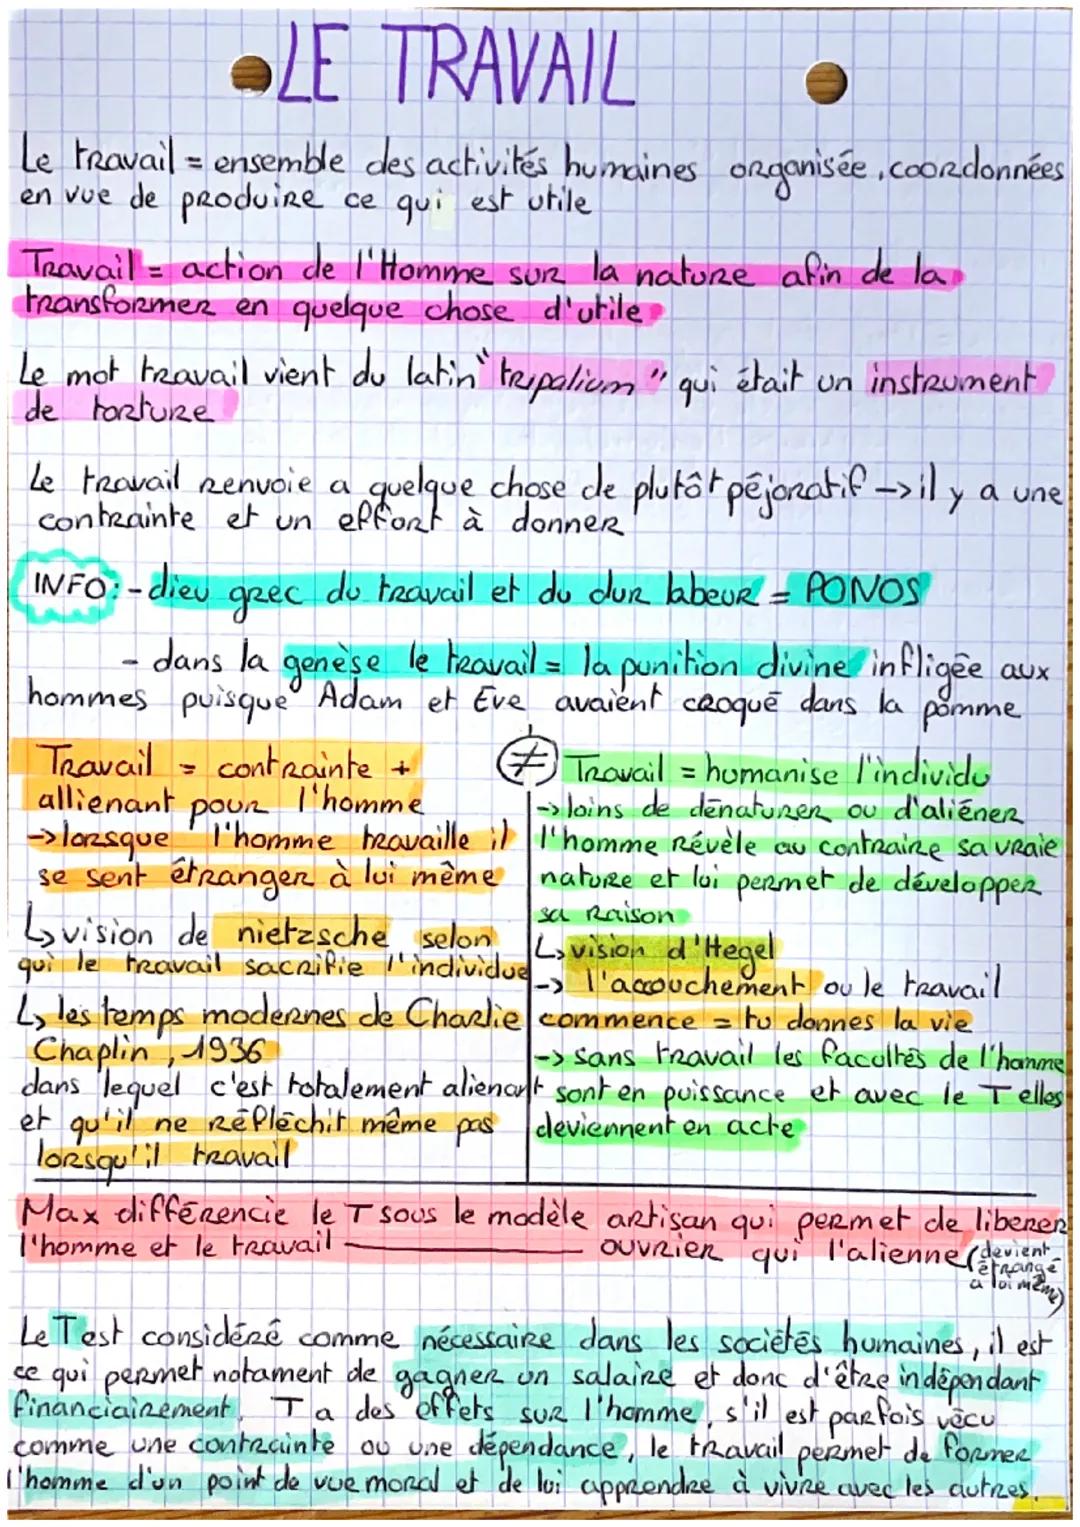 LE TRAVAIL
Le travail = ensemble des activités humaines organisée, coordonnées
en vue de produire ce qui est utile
Travail = action de l'Homme sur la nature afin de la
transformer en quelque chose d'utile
Le mot travail vient du latin "tripalium" qui était un instrument
de torture
Le travail renvoie a quelque chose de plutôt péjoratif -> il y a une
contrainte et un effort à donner
INFO: - dieu grec du travail et du dur labeur = PONOS
- dans la genèse le travail = la punition divine infligée aux
hommes puisque Adam et Eve avaient croqué dans la pomme
Travail = contrainte +
allienant pour l'homme
-> lorsque l'homme travaille il
se sent étranger à lui même
↳ vision de nietzsche selon
qui le travail sacrifie l'individue
↳ les temps modernes de Charlie
Chaplin, 1936
dans lequel c'est totalement alienant
et qu'il ne réfléchit même pas
lorsqu'il travail
≠ Travail = humanise l'individu
-> loins de dénaturer ou d'aliéner
l'homme révèle au contraire sa vraie
nature et lui permet de développer
sa raison
↳ vision d'Hegel
-> l'accouchement ou le travail
commence = tu donnes la vie
-> sans travail les facultés de l'homme
sont en puissance et avec le T elles
deviennent en acte
Max différencie le T sous le modèle artisan qui permet de liberer
l'homme et le travail ———— ouvrier qui l'alienne (devient
étrangé
a lui même)
Le T est considéré comme nécessaire dans les sociétés humaines, il est
ce qui permet notament de gagner un salaire et donc d'être indépendant
financiairement. T a des effets sur l'homme, s'il est parfois vécu
comme une contrainte ou une dépendance, le travail permet de former
l'homme d'un point de vue moral et de lui apprendre à vivre avec les autres.